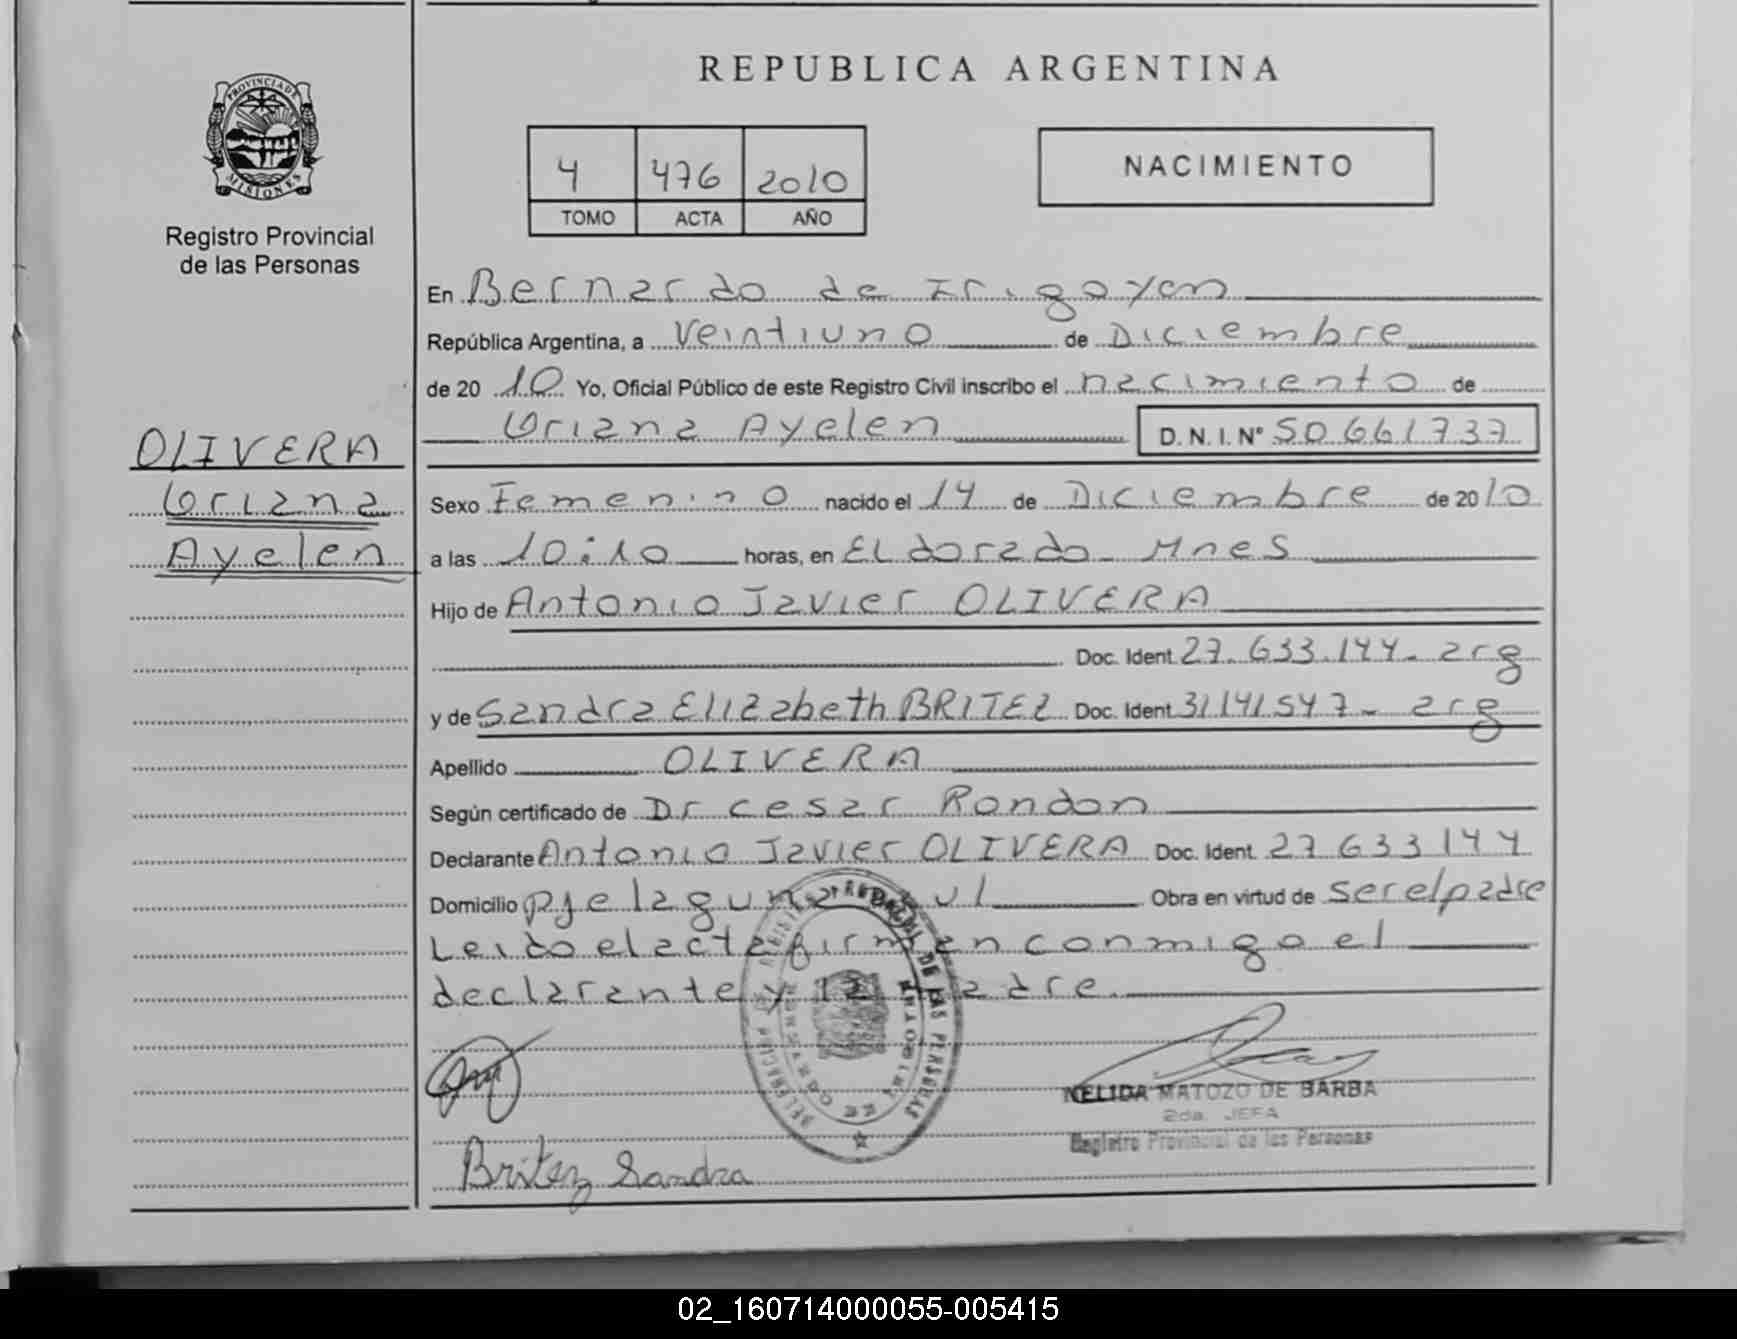 REPUBLICA ARGENTINA
PROVINCIA DE
MISIONES
Registro Provincial
de las Personas
4 476 2010
TOMO ACTA AÑO
NACIMIENTO
En Bernardo de Irigoyen
República Argentina, a Veintiuno de Diciembre
de 20 10 Yo, Oficial Público de este Registro Civil inscribo el nacimiento de
Oriana Ayelen D.N.I. Nº 50661737
OLIVERA
Oriana
Ayelen
Sexo Femenino nacido el 14 de Diciembre de 2010
a las 10:10 horas, en Eldorado - Mnes
Hijo de Antonio Javier OLIVERA
Doc. Ident 27.633.144- arg
y de Sandra Elizabeth BRITEZ Doc. Ident 31141547- arg
Apellido OLIVERA
Según certificado de Dr Cesar Rondon
Declarante Antonio Javier OLIVERA Doc. Ident 27633144
Domicilio pje laguna Azul Obra en virtud de ser el padre
Leido el acta firman conmigo el
declarante y la madre.
NELIDA MATOZO DE BARBA
2da. JEFA
Registro Provincial de las Personas
Britez Sandra
02_160714000055-005415